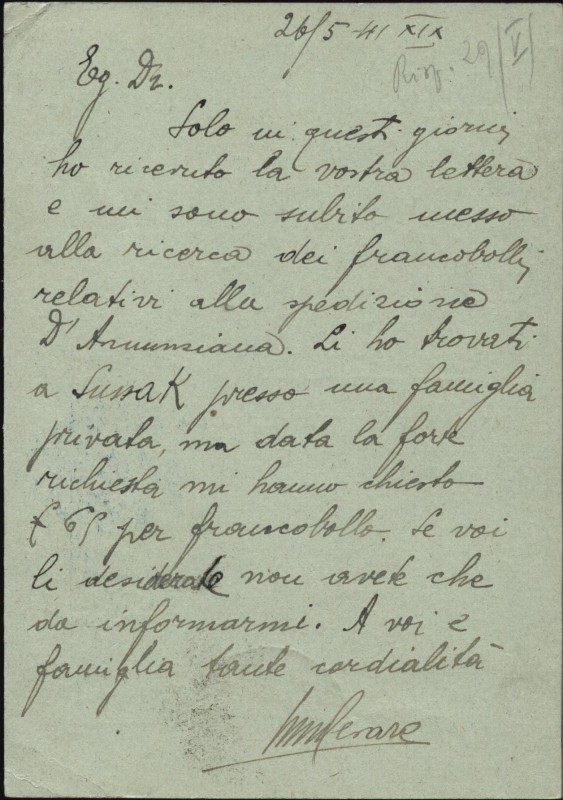 26/5 41 XIX
Risp. 29/V
Eg. Dr.
Solo in questi giorni
ho ricevuto la vostra lettera
e mi sono subito messo
alla ricerca dei francobolli
relativi alla spedizione
D'Annunziana. Li ho trovati
a Sussak presso una famiglia
privata, ma data la forte
richiesta mi hanno chiesto
£ 65 per francobollo. Se voi
li desiderate non avete che
da informarmi. A voi e
famiglia tante cordialità